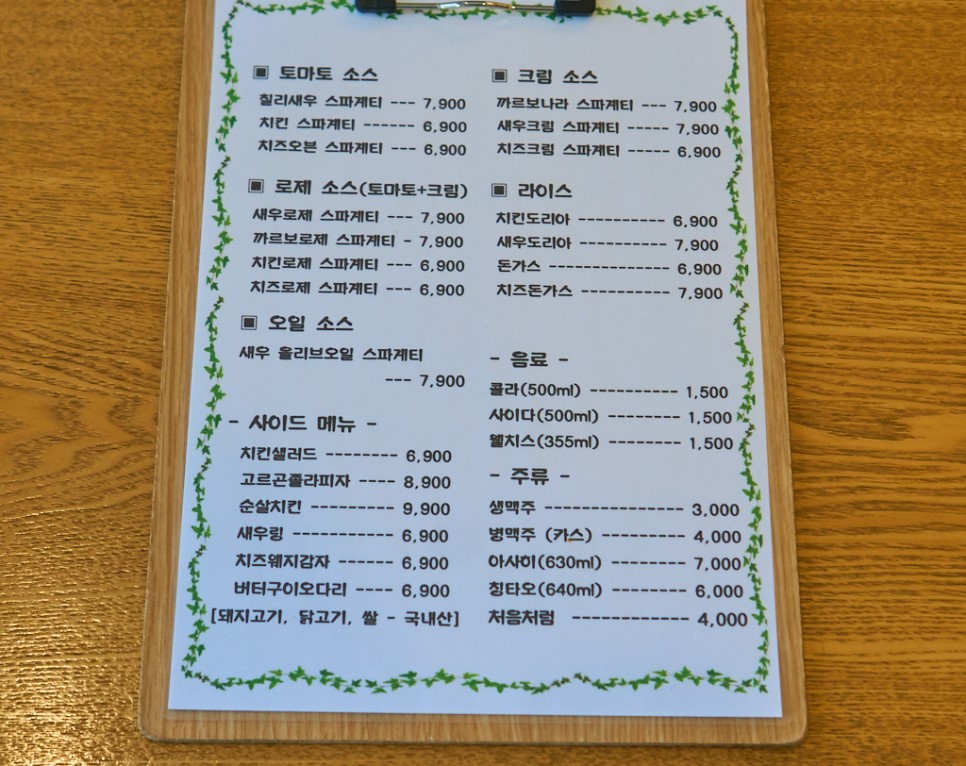 ▣ 토마토 소스
칠리새우 스파게티 --- 7,900
치킨 스파게티 ------ 6,900
치즈오븐 스파게티 --- 6,900
▣ 로제 소스(토마토+크림)
새우로제 스파게티 --- 7,900
까르보로제 스파게티 - 7,900
치킨로제 스파게티 --- 6,900
치즈로제 스파게티 --- 6,900
▣ 오일 소스
새우 올리브오일 스파게티
--- 7,900
- 사이드 메뉴 -
치킨샐러드 -------- 6,900
고르곤졸라피자 ---- 8,900
순살치킨 --------- 9,900
새우링 ----------- 6,900
치즈웨지감자 ------ 6,900
버터구이오다리 ---- 6,900
[돼지고기, 닭고기, 쌀 - 국내산]
▣ 크림 소스
까르보나라 스파게티 --- 7,900
새우크림 스파게티 ----- 7,900
치즈크림 스파게티 ----- 6,900
▣ 라이스
치킨도리아 ---------- 6,900
새우도리아 ---------- 7,900
돈가스 -------------- 6,900
치즈돈가스 ---------- 7,900
- 음료 -
콜라(500ml) ---------- 1,500
사이다(500ml) -------- 1,500
웰치스(355ml) -------- 1,500
- 주류 -
생맥주 ---------------- 3,000
병맥주 (카스) ---------- 4,000
아사히(630ml) --------- 7,000
칭타오(640ml) --------- 6,000
처음처럼 ------------- 4,000